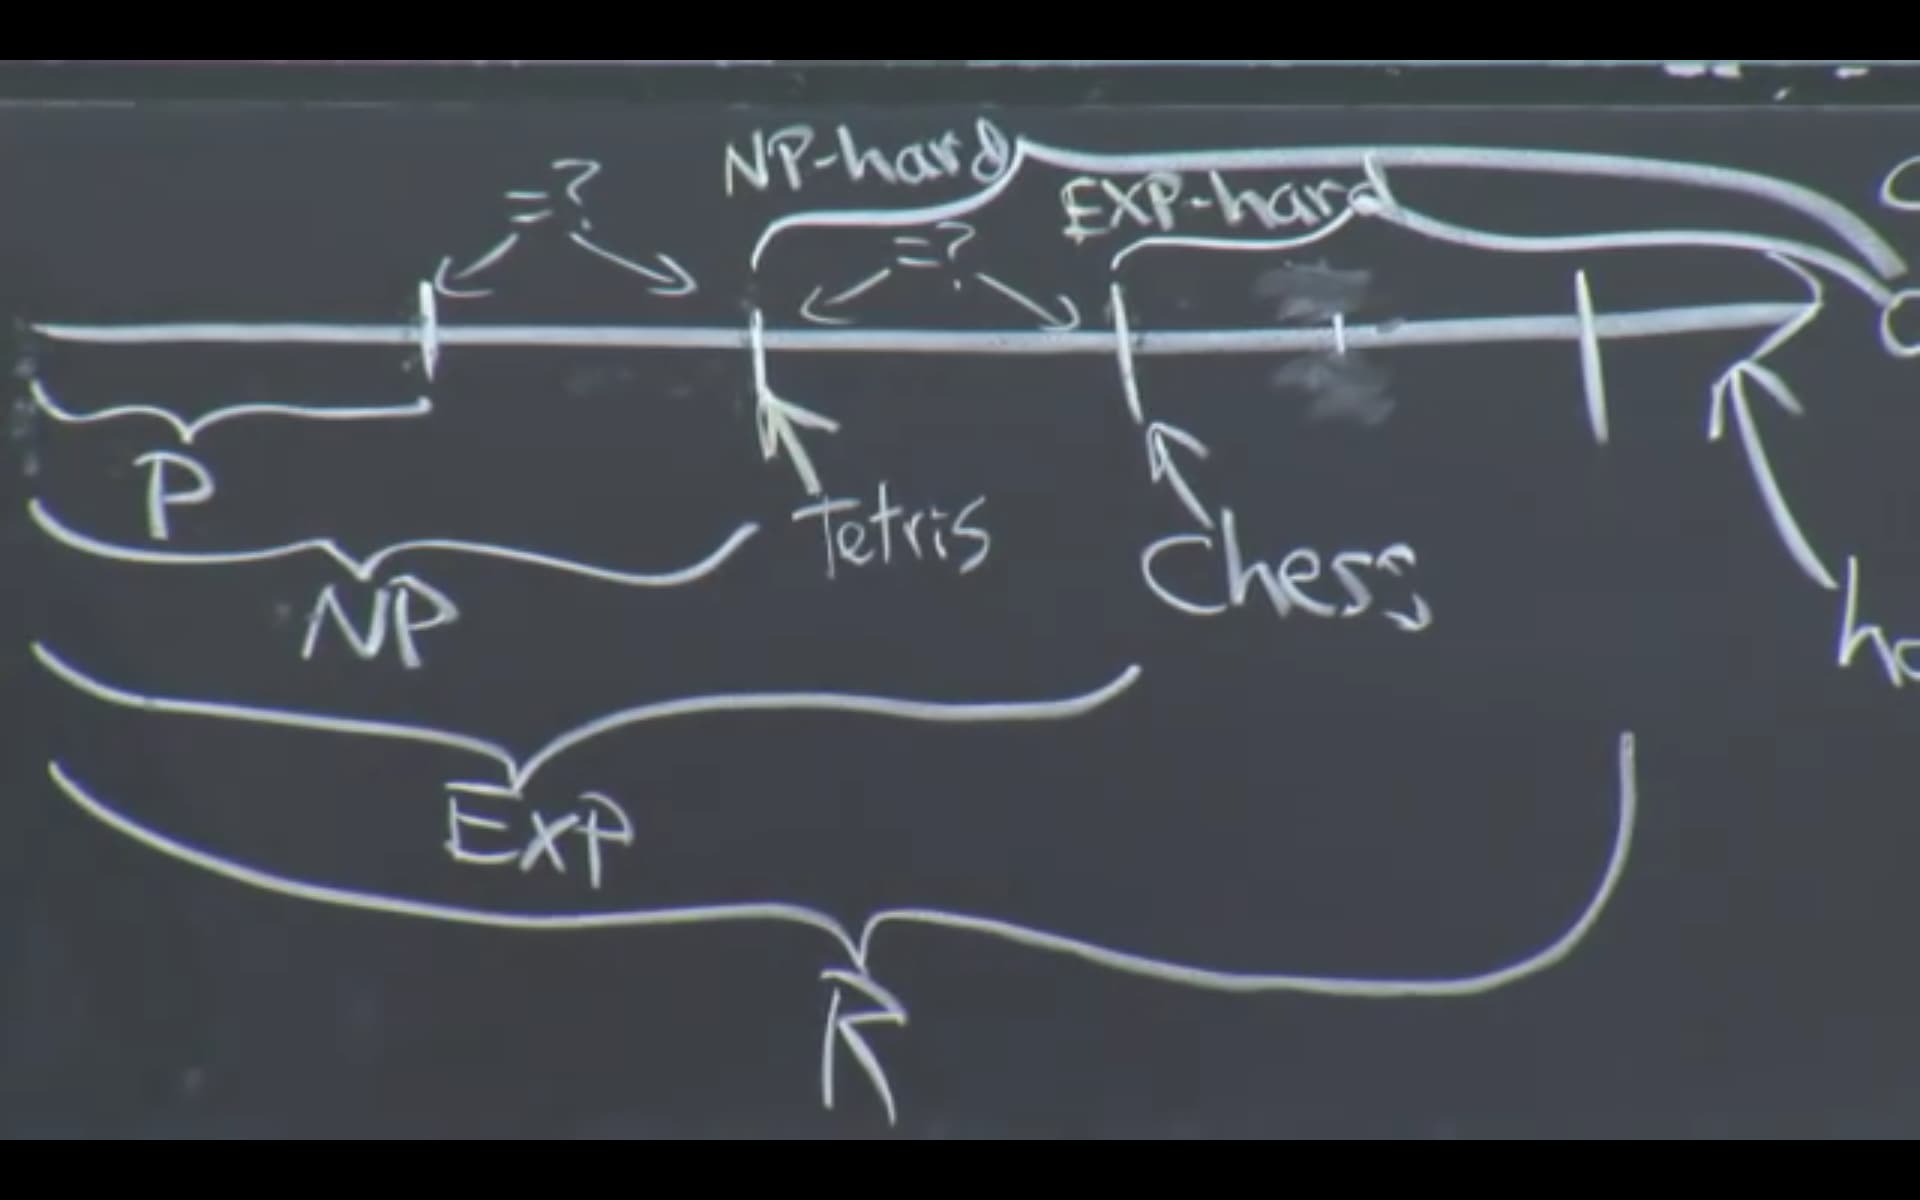 =?
NP-hard
EXP-hard
=?
P
Tetris
Chess
NP
EXP
R